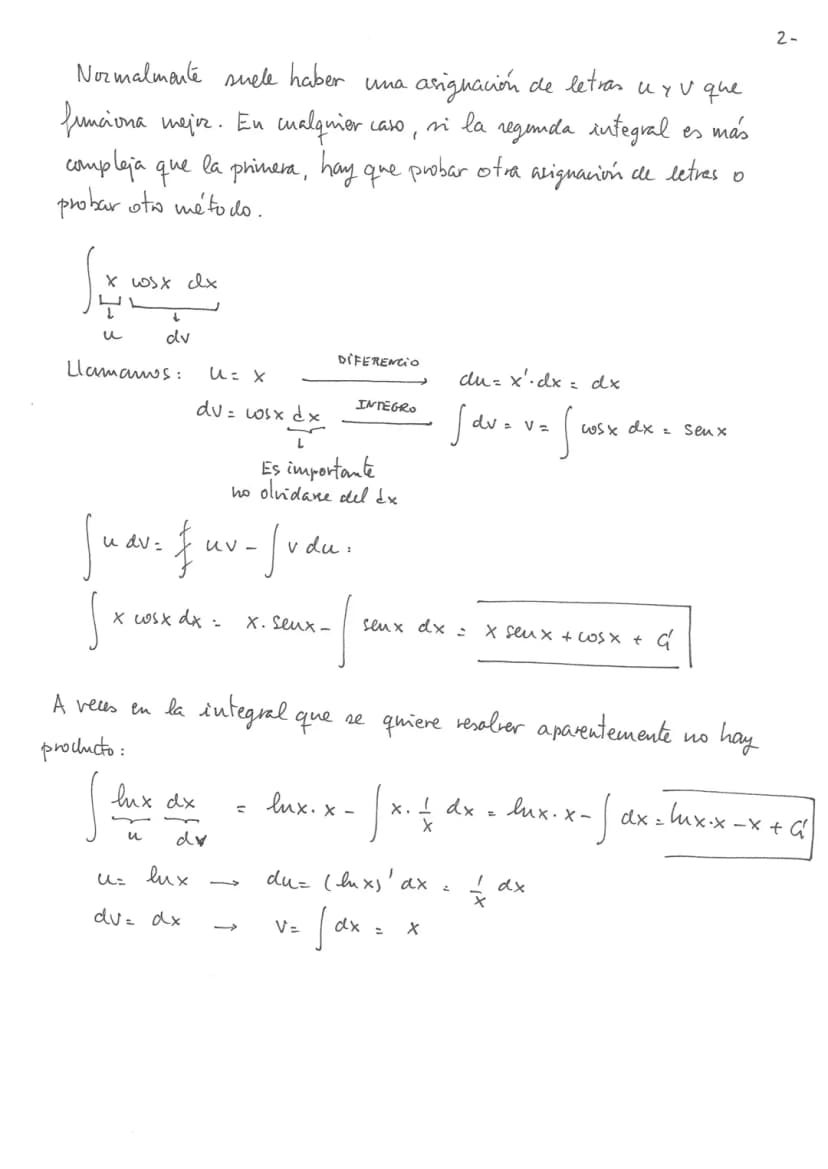 2-
Normalmente suele haber una asignación de letras u y v que
funciona mejor. En cualquier caso, si la segunda integral es más
compleja que la primera, hay que probar otra asignación de letras o
probar otro método.
∫ x cosx dx
u dv
Llamamos: u = x DIFERENCIO du = x'·dx = dx
dv = cosx dx INTEGRO ∫ dv = v = ∫ cosx dx = senx
Es importante
no olvidarse del dx
∫ u dv = uv - ∫ v du =
∫ x cosx dx = x. senx - ∫ senx dx = x senx + cosx + C
A veces en la integral que se quiere resolver aparentemente no hay
producto:
∫ lnx dx = lnx. x - ∫ x. 1/x dx = lnx. x - ∫ dx = lnx·x - x + C
u dv
u = lnx → du = (lnx)' dx = 1/x dx
dv = dx → v = ∫ dx = x